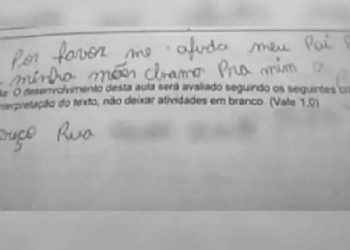 Por favor me ajuda meu Pai
minha mães chamo Pra mim o
O desenvolvimento desta aula será avaliado seguindo os seguintes
interpretação do texto, não deixar atividades em branco. (Vale 1,0)
Rua